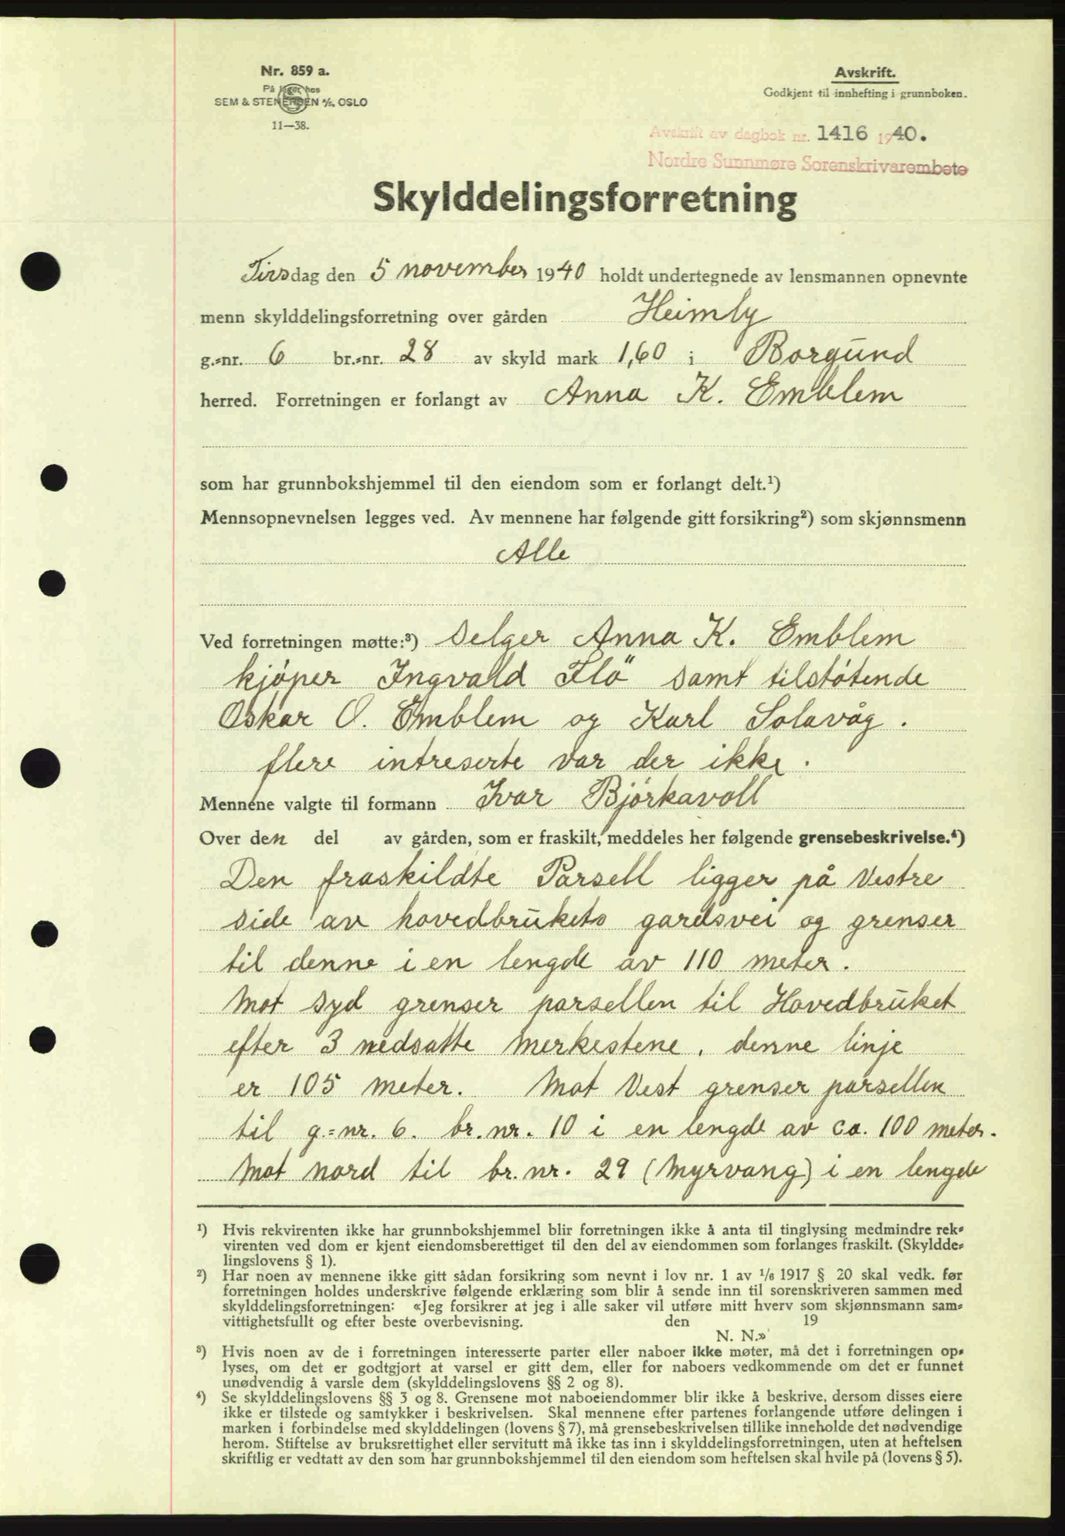 Nr. 859 a.
På lager hos
SEM & STENERSEN A/S, OSLO
11—38.
Avskrift.
Godkjent til innhefting i grunnboken.
Avskrift av dagbok nr. 1416 1940.
Nordre Sunnmøre Sorenskrivarembete
Skylddelingsforretning
Tirsdag den 5 november 1940 holdt undertegnede av lensmannen opnevnte
menn skylddelingsforretning over gården Heimly
g.-nr. 6 br.-nr. 28 av skyld mark 1,60 i Borgund
herred. Forretningen er forlangt av Anna K. Emblem
som har grunnbokshjemmel til den eiendom som er forlangt delt.¹)
Mennsopnevnelsen legges ved. Av mennene har følgende gitt forsikring²) som skjønnsmenn
Alle
Ved forretningen møtte:³) Selger Anna K. Emblem
kjøper Ingvald Flö samt tilstøtende
Oskar O. Emblem og Karl Solavåg.
flere intreserte var der ikke.
Mennene valgte til formann Ivar Bjørkavoll
Over den del av gården, som er fraskilt, meddeles her følgende grensebeskrivelse.⁴)
Den fraskildte Parsell ligger på Vestre
side av hovedbrukets gardsvei og grenser
til denne i en lengde av 110 meter.
Mot syd grenser parsellen til Hovedbruket
efter 3 nedsatte merkestene, denne linje
er 105 meter. Mot Vest grenser parsellen
til g.-nr. 6. br.nr. 10 i en lengde av ca. 100 meter.
Mot nord til br.nr. 29 (Myrvang) i en lengde
¹) Hvis rekvirenten ikke har grunnbokshjemmel blir forretningen ikke å anta til tinglysing medmindre rek-
virenten ved dom er kjent eiendomsberettiget til den del av eiendommen som forlanges fraskilt. (Skyldde-
lingslovens § 1).
²) Har noen av mennene ikke gitt sådan forsikring som nevnt i lov nr. 1 av 1/6 1917 § 20 skal vedk. før
forretningen holdes underskrive følgende erklæring som blir å sende inn til sorenskriveren sammen med
skylddelingsforretningen: «Jeg forsikrer at jeg i alle saker vil utføre mitt hverv som skjønnsmann sam-
vittighetsfullt og efter beste overbevisning. den 19
N. N.»
³) Hvis noen av de i forretningen interesserte parter eller naboer ikke møter, må det i forretningen op-
lyses, om det er godtgjort at varsel er gitt dem, eller for naboers vedkommende om det er funnet
unødvendig å varsle dem (skylddelingslovens §§ 2 og 8).
⁴) Se skylddelingslovens §§ 3 og 8. Grensene mot naboeiendommer blir ikke å beskrive, dersom disses eiere
ikke er tilstede og samtykker i beskrivelsen. Skal mennene efter partenes forlangende utføre delingen i
marken i forbindelse med skylddelingen (lovens § 7), må grensebeskrivelsen tillike inneholde det nødvendige
herom. Stiftelse av bruksrettighet eller servitutt må ikke tas inn i skylddelingsforretningen, uten at heftelsen
skriftlig er vedtatt av den som har grunnbokshjemmel til den eiendom som heftelsen skal hvile på (lovens § 5).